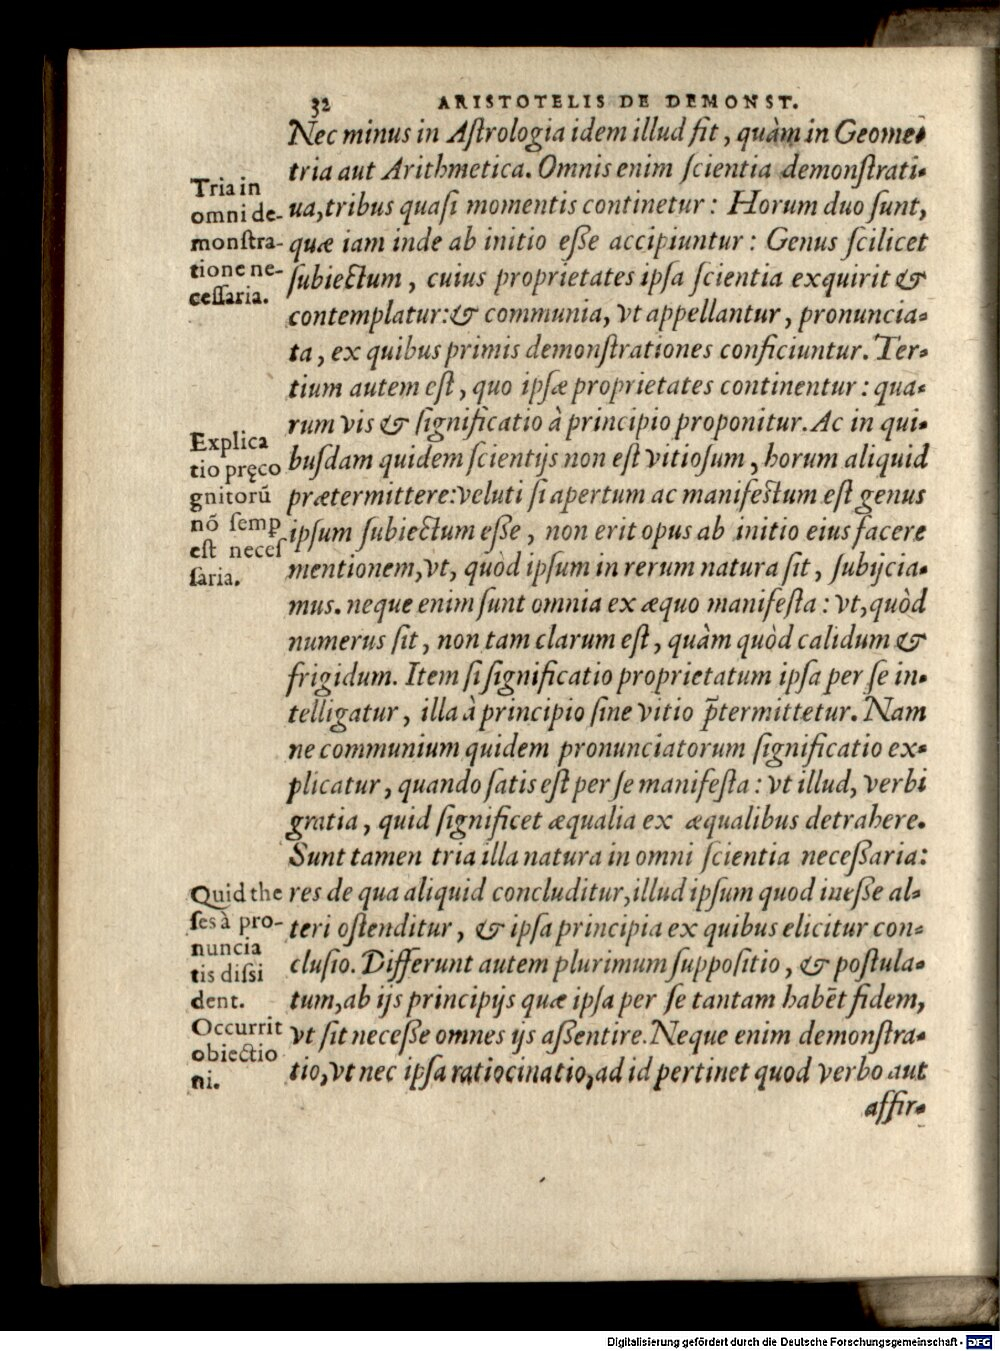 32 ARISTOTELIS DE DEMONST.
Nec minus in Aſtrologia idem illud fit, quàm in Geome-
tria aut Arithmetica. Omnis enim ſcientia demonſtrati-
ua, tribus quaſi momentis continetur: Horum duo ſunt,
quæ iam inde ab initio eſſe accipiuntur: Genus ſcilicet
ſubiectum, cuius proprietates ipſa ſcientia exquirit &
contemplatur: & communia, vt appellantur, pronuncia-
ta, ex quibus primis demonſtrationes conficiuntur. Ter-
tium autem eſt, quo ipſæ proprietates continentur: qua-
rum vis & ſignificatio à principio proponitur. Ac in qui-
buſdam quidem ſcientijs non eſt vitioſum, horum aliquid
prætermittere: veluti ſi apertum ac manifeſtum eſt genus
ipſum ſubiectum eſſe, non erit opus ab initio eius facere
mentionem, vt, quòd ipſum in rerum natura ſit, ſubijcia-
mus. neque enim ſunt omnia ex æquo manifeſta: vt, quòd
numerus ſit, non tam clarum eſt, quàm quòd calidum &
frigidum. Item ſi ſignificatio proprietatum ipſa per ſe in-
telligatur, illa à principio ſine vitio p̃termittetur. Nam
ne communium quidem pronunciatorum ſignificatio ex-
plicatur, quando ſatis eſt per ſe manifeſta: vt illud, verbi
gratia, quid ſignificet æqualia ex æqualibus detrahere.
Sunt tamen tria illa natura in omni ſcientia neceſſaria:
res de qua aliquid concluditur, illud ipſum quod ineſſe al-
teri oſtenditur, & ipſa principia ex quibus elicitur con-
cluſio. Differunt autem plurimum ſuppoſitio, & poſtula-
tum, ab ijs principijs quæ ipſa per ſe tantam habẽt fidem,
vt ſit neceſſe omnes ijs aſſentire. Neque enim demonſtra-
tio, vt nec ipſa ratiocinatio, ad id pertinet quod verbo aut
affir-
Tria in
omni de-
monſtra-
tione ne-
ceſſaria.
Explica
tio pręco
gnitorũ
nõ ſemp
eſt neceſ
ſaria.
Quid the
ſes à pro-
nuncia
tis diſſi
dent.
Occurrit
obiectio
ni.
Digitalisierung gefördert durch die Deutsche Forschungsgemeinschaft - DFG